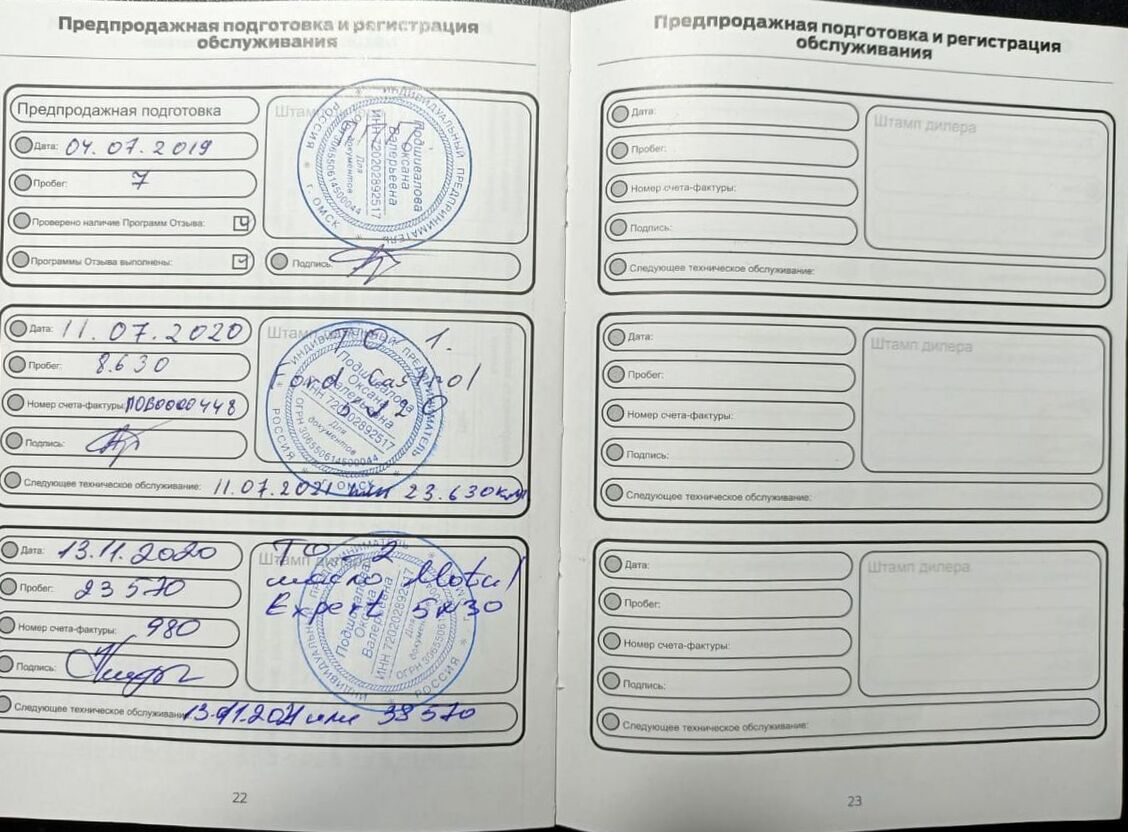 Предпродажная подготовка и регистрация
обслуживания
Предпродажная подготовка
Дата: 04.07.2019
Пробег: 7
Проверено наличие Программ Отзыва:
Программы Отзыва выполнены:
Подпись:
ИНДИВИДУАЛЬНЫЙ ПРЕДПРИНИМАТЕЛЬ
Подшивалова
Оксана
Валерьевна
ИНН 720202892517
Для
документов
РОССИЯ * г. ОМСК
Дата: 11.07.2020
Пробег: 8.630
Номер счета-фактуры: ПОВ0000448
Подпись:
Следующее техническое обслуживание: 11.07.2021 или 23.630км
1.
Ford Castrol
ИНДИВИДУАЛЬНЫЙ ПРЕДПРИНИМАТЕЛЬ
Подшивалова
Оксана
Валерьевна
ИНН 720202892517
ОГРН 306550614500044
Для
документов
РОССИЯ * г. ОМСК
Дата: 13.11.2020
Пробег: 23 570
Номер счета-фактуры: 980
Подпись:
Следующее техническое обслуживание: 13.11.2021 или 38570
Штамп дилера
ТО-2
масло Motul
Expert 5w30
ИНДИВИДУАЛЬНЫЙ ПРЕДПРИНИМАТЕЛЬ
Подшивалова
Оксана
Валерьевна
ИНН 720202892517
Для
РОССИЯ
22
Предпродажная подготовка и регистрация
обслуживания
Дата:
Пробег:
Номер счета-фактуры:
Подпись:
Следующее техническое обслуживание:
Штамп дилера
Дата:
Пробег:
Номер счета-фактуры:
Подпись:
Следующее техническое обслуживание:
Штамп дилера
Дата:
Пробег:
Номер счета-фактуры:
Подпись:
Следующее техническое обслуживание:
Штамп дилера
23